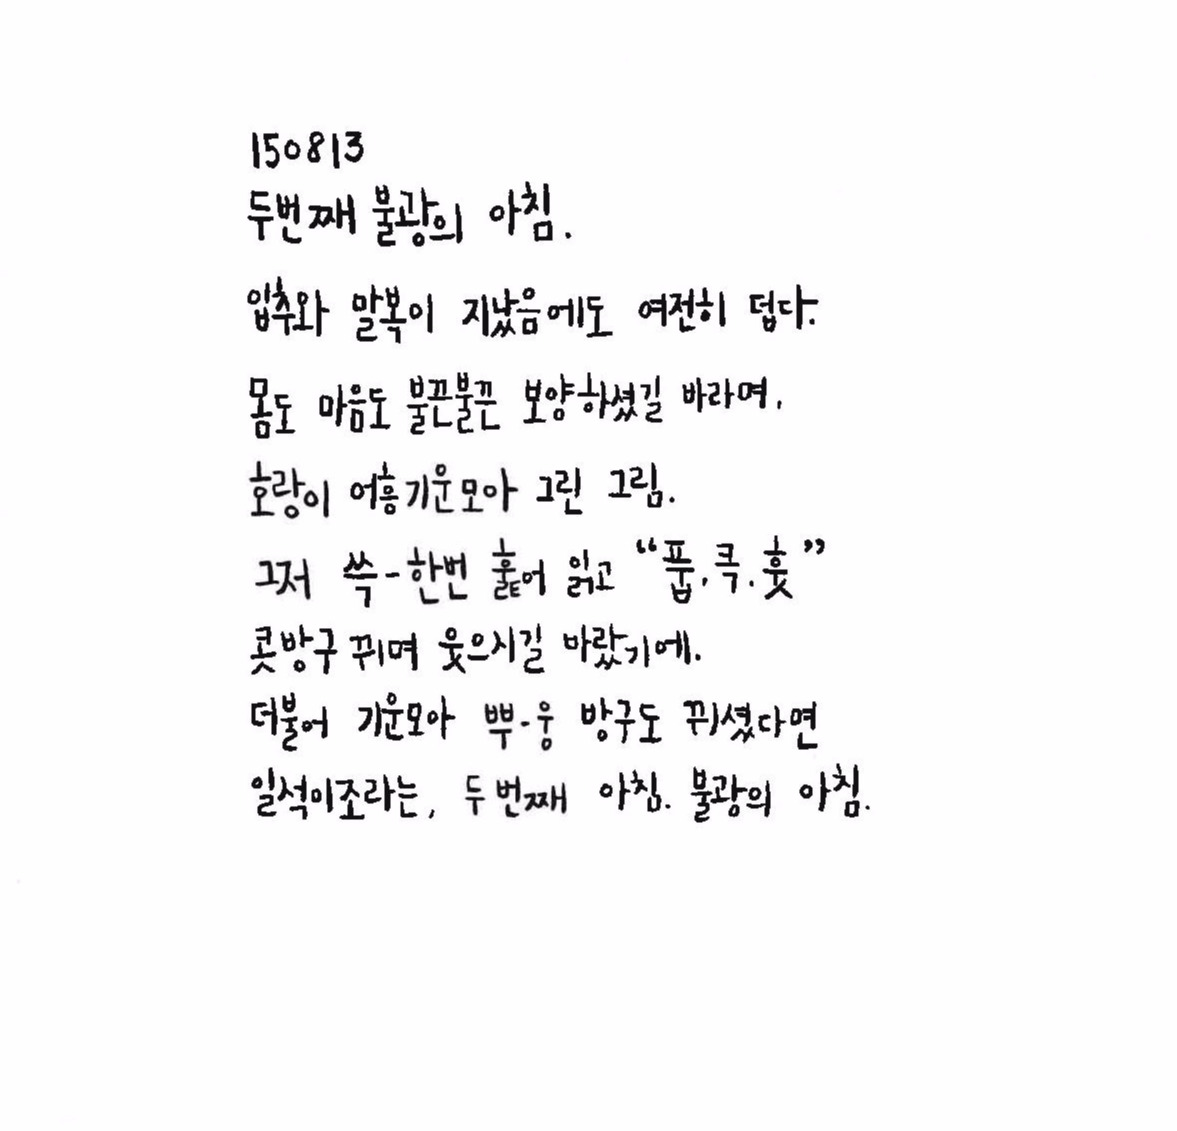 150813
두번째 불광의 아침.
입추와 말복이 지났음에도 여전히 덥다.
몸도 마음도 불끈불끈 보양하셨길 바라며,
호랑이 어흥기운모아 그린 그림.
그저 쓱-한번 훑어 읽고 “풉.콕.훗”
콧방구 뀌며 웃으시길 바랐기에.
더불어 기운모아 뿌-웅 방구도 뀌셨다면
일석이조라는, 두번째 아침. 불광의 아침.